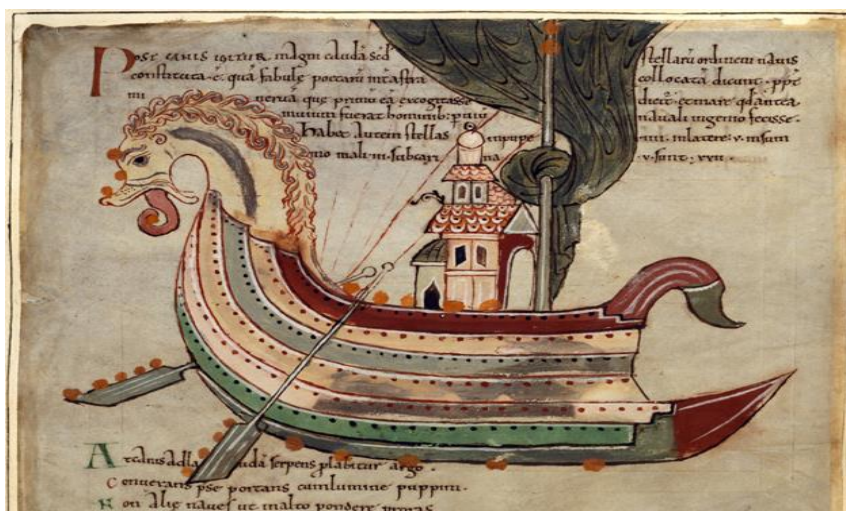 Post canis igitur magni caudā sed stellarū ordinem nauis
constituta ē quā fabule poetarū int astra collocatā dicunt ppt
mi neruā que primū eā excogitasse dicit et mare qd antea
inuium fuerat hominib: p uiū nauali ingenio fecisse
habet autem stellas in puppe IIII in latere v in sum
mo mali III sub cari na v sunt XXII
At canis ad caudā serpens plabitur argo
conuersam pse portans cum lumine puppim
Non alie naues ut in alto pondere proras